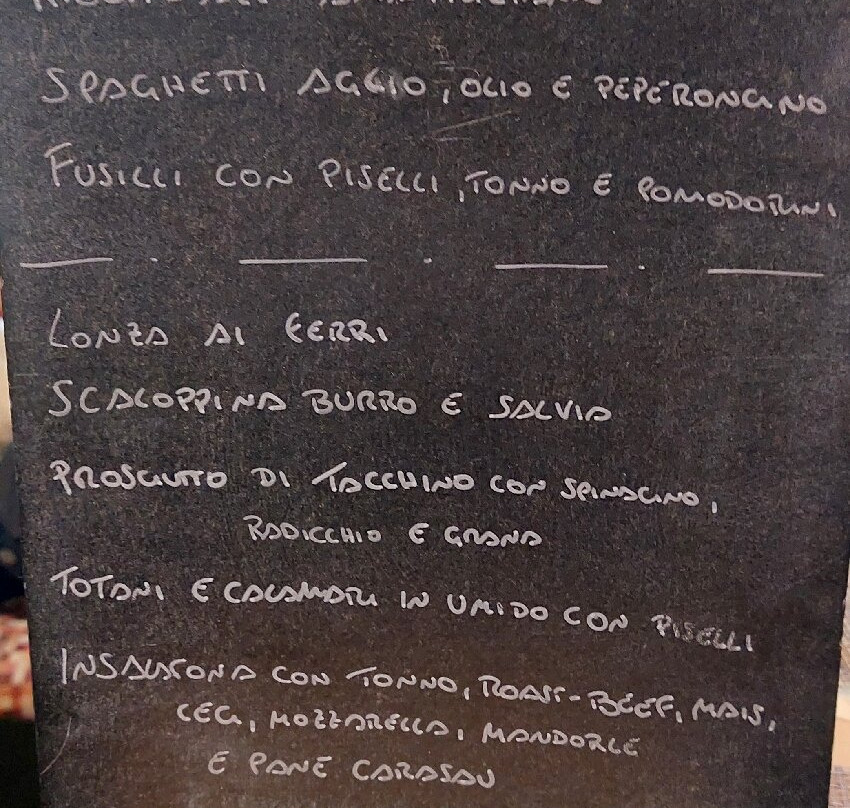 SPAGHETTI AGLIO, OLIO E PEPERONCINO
FUSILLI CON PISELLI, TONNO E POMODORINI
LONZA AI FERRI
SCALOPPINA BURRO E SALVIA
PROSCIUTTO DI TACCHINO CON SPINACINO,
RADICCHIO E GRANA
TOTANI E CALAMARI IN UMIDO CON PISELLI
INSALATONA CON TONNO, ROAST-BEEF, MAIS,
CECI, MOZZARELLA, MANDORLE
E PANE CARASAU